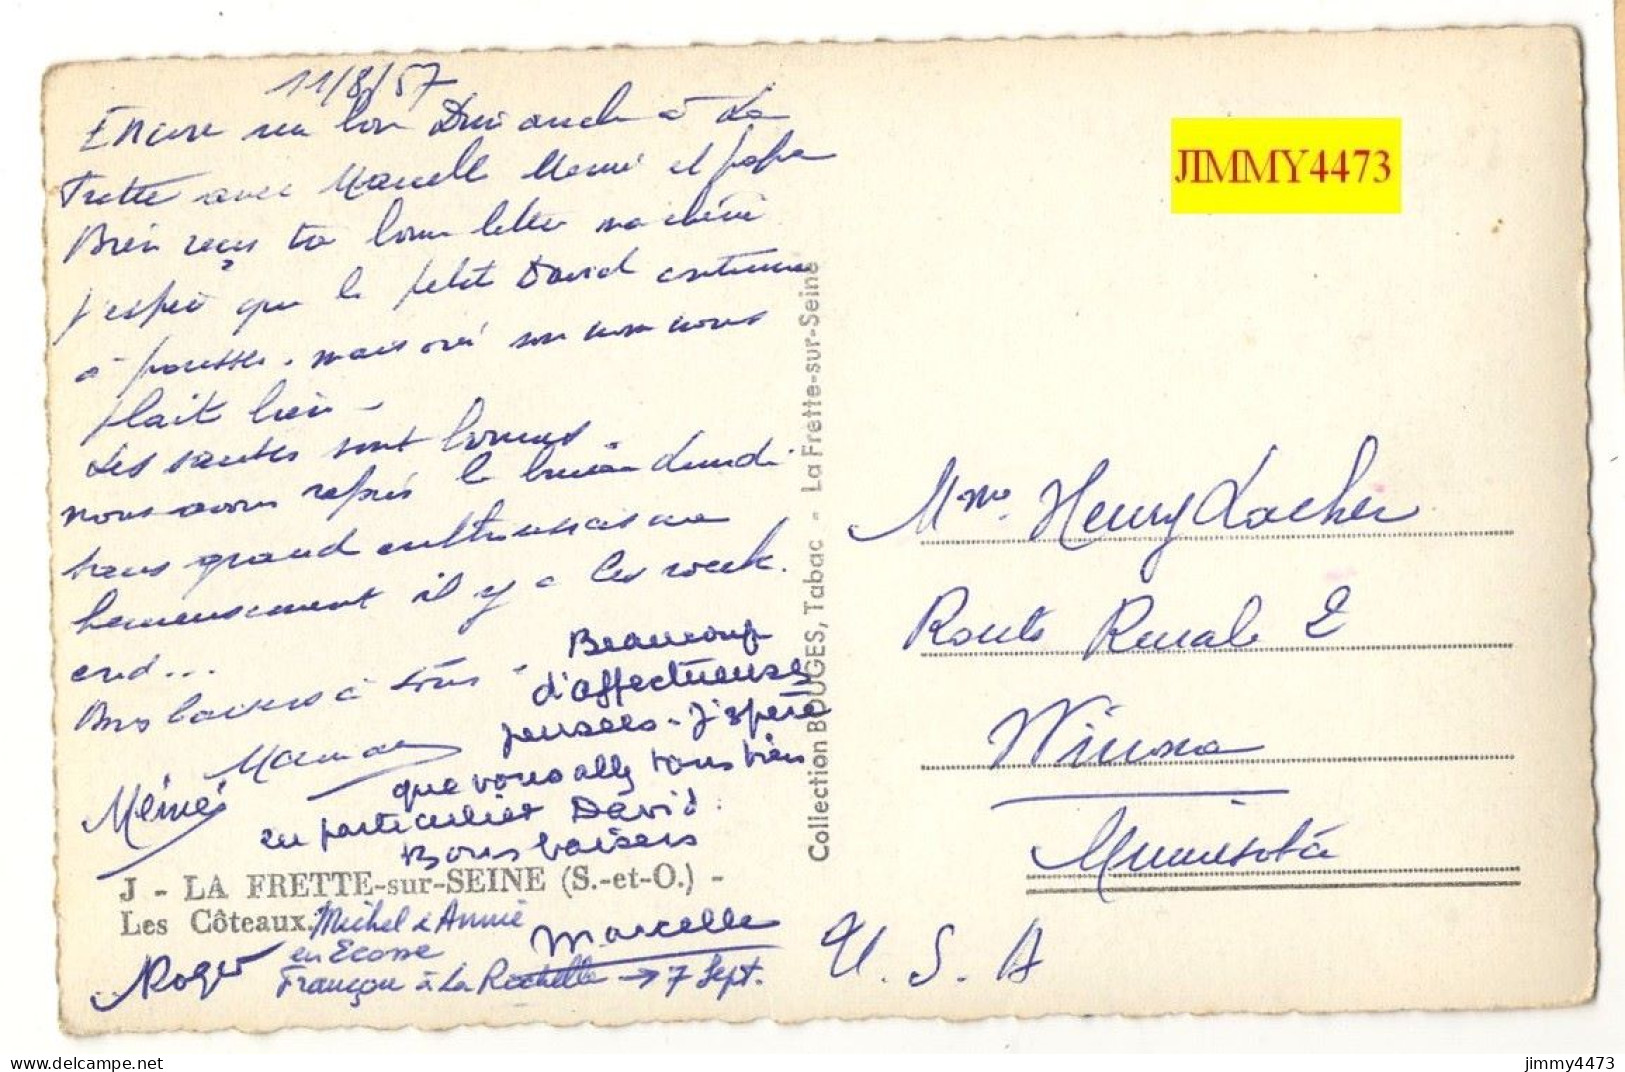 11/8/57
Encore un bon Dimanche à La
Frette avec Marcelle Mémé et papa
Bien reçu ta bonne lettre ma chérie
j'espère que le petit David continue
à pousser. mais oui son nom nous
plait bien -
Les santés sont bonnes.
nous avons repris le lundi.
sans grand enthousiasme
heureusement il y a les week.
end...
Bons baisers à tous -
Maman
Mémé
Beaucoup
d'affectueuses
pensées - J'espère
que vous allez tous bien
en particulier David.
Bons baisers
Marcelle
J - LA FRETTE-sur-SEINE (S.-et-O.) -
Les Côteaux.
Michel & Annie
en Ecosse
François à La Rochelle → 7 Sept.
Roger
Collection BOUGES, Tabac - La Frette-sur-Seine
JIMMY4473
Mme. Henry Lacher
Route Rurale 2
Winona
Minnesota
U. S. A
delcampe.net
jimmy4473